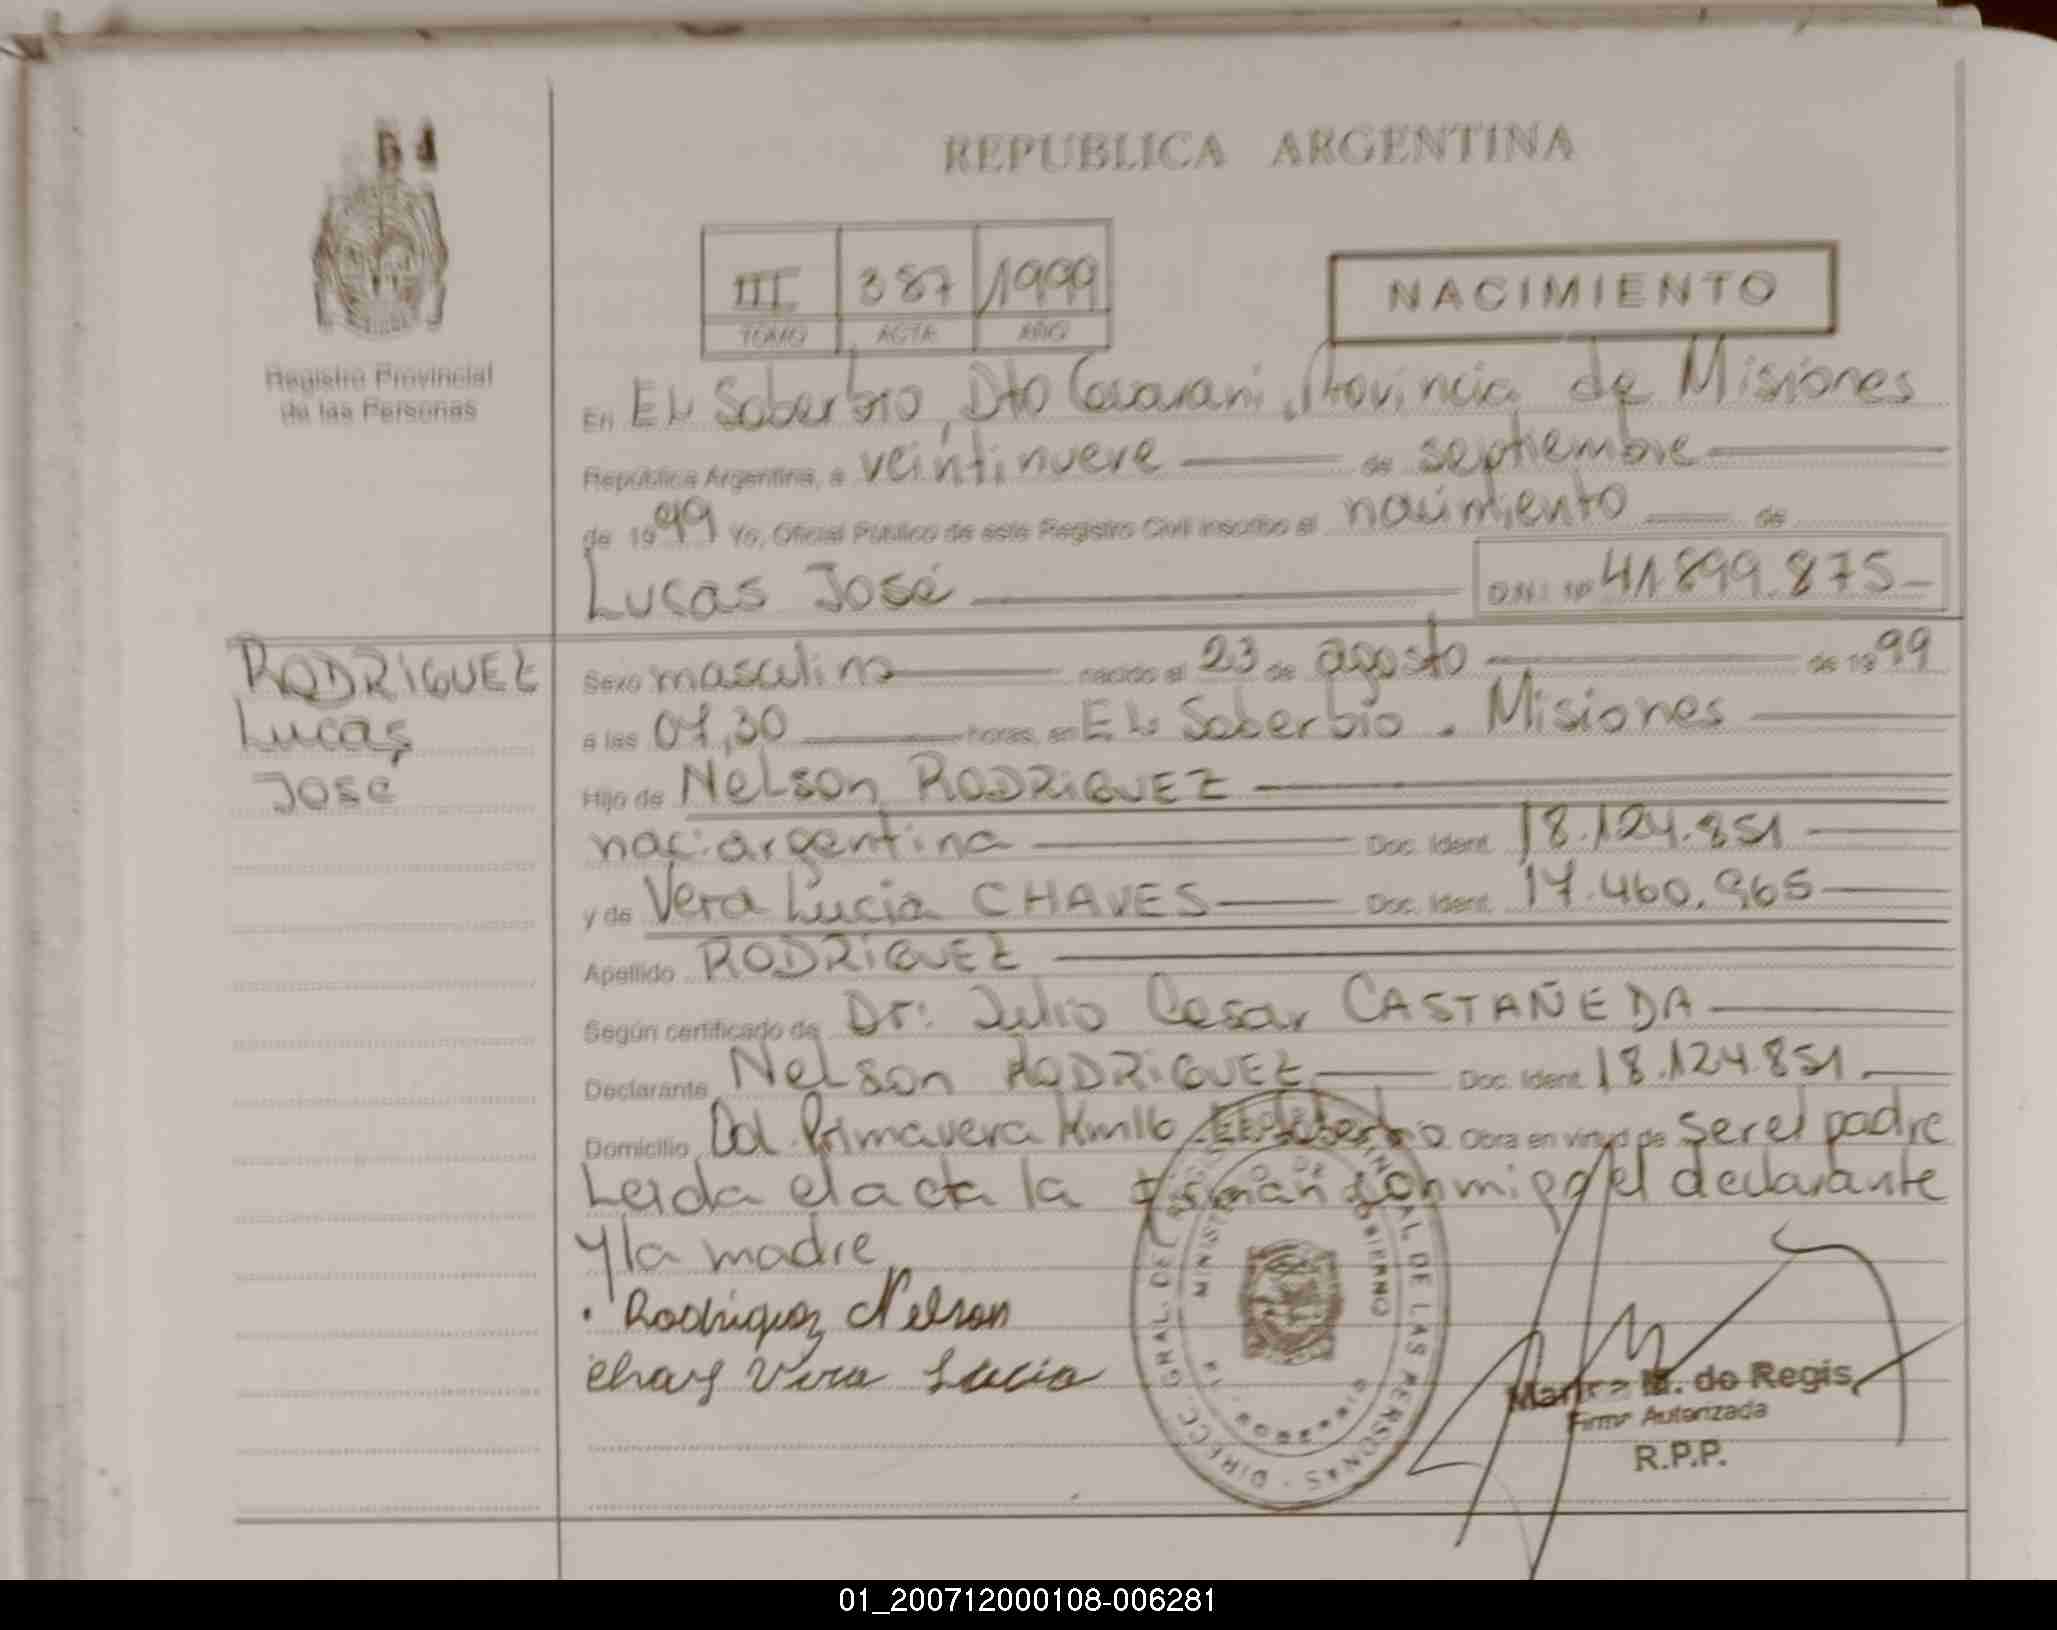 REPUBLICA ARGENTINA
III 387 1999
TOMO ACTA AÑO
NACIMIENTO
Registro Provincial
de las Personas
En EL Soberbio, Dto Guarani, Provincia de Misiones
República Argentina, a veintinueve de septiembre
de 1999 Yo, Oficial Público de este Registro Civil inscribo el nacimiento de
Lucas José D.N.I. Nº 41.899.875
RODRIGUEZ
Lucas
José
Sexo masculino nacido el 23 de agosto de 1999
a las 07,30 horas, en EL Soberbio. Misiones
Hijo de Nelson RODRIGUEZ
nac: argentina Doc. Ident. 18.124.851
y de Vera Lucia CHAVES Doc. Ident. 17.460.965
Apellido RODRIGUEZ
Según certificado de Dr: Julio Cesar CASTAÑEDA
Declarante Nelson RODRIGUEZ Doc. Ident. 18.124.851
Domicilio Col Primavera Km 16 EL Soberbio Obra en virtud de ser el padre
Leida el acta la firman conmigo el declarante
y la madre
Rodriguez Nelson
Chaves Vera Lucia
DIRECC. GRAL. DEL REGISTRO PROVINCIAL DE LAS PERSONAS
MINISTERIO DE GOBIERNO
MISIONES
de Regis
Firma Autorizada
R.P.P.
01_200712000108-006281